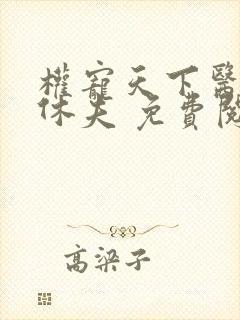 權寵天下醫
休夫 免費閱
高粱子